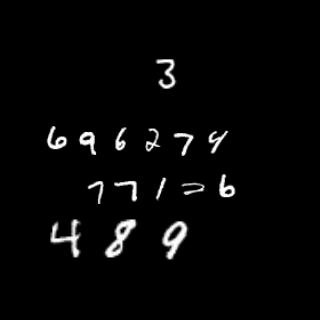 3
696274
771=6
489